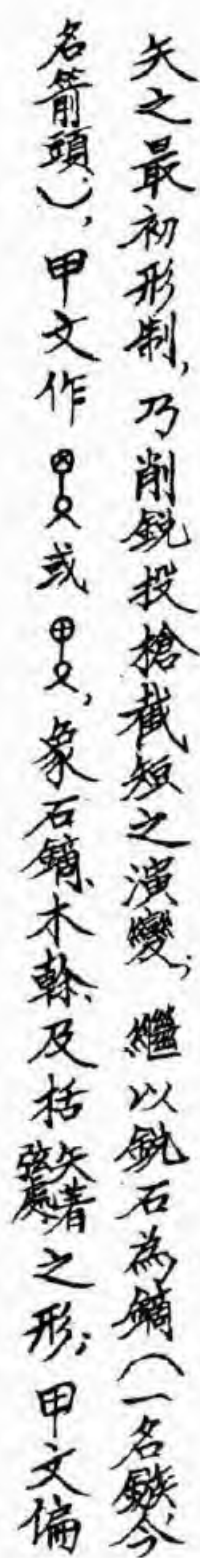 矢之最初形制，乃削銳投槍截短之演變；繼以銳石為鏑（一名鏃，今
名箭頭），甲文作或，象石鏑、木榦、及括矢著弦處之形；甲文偏